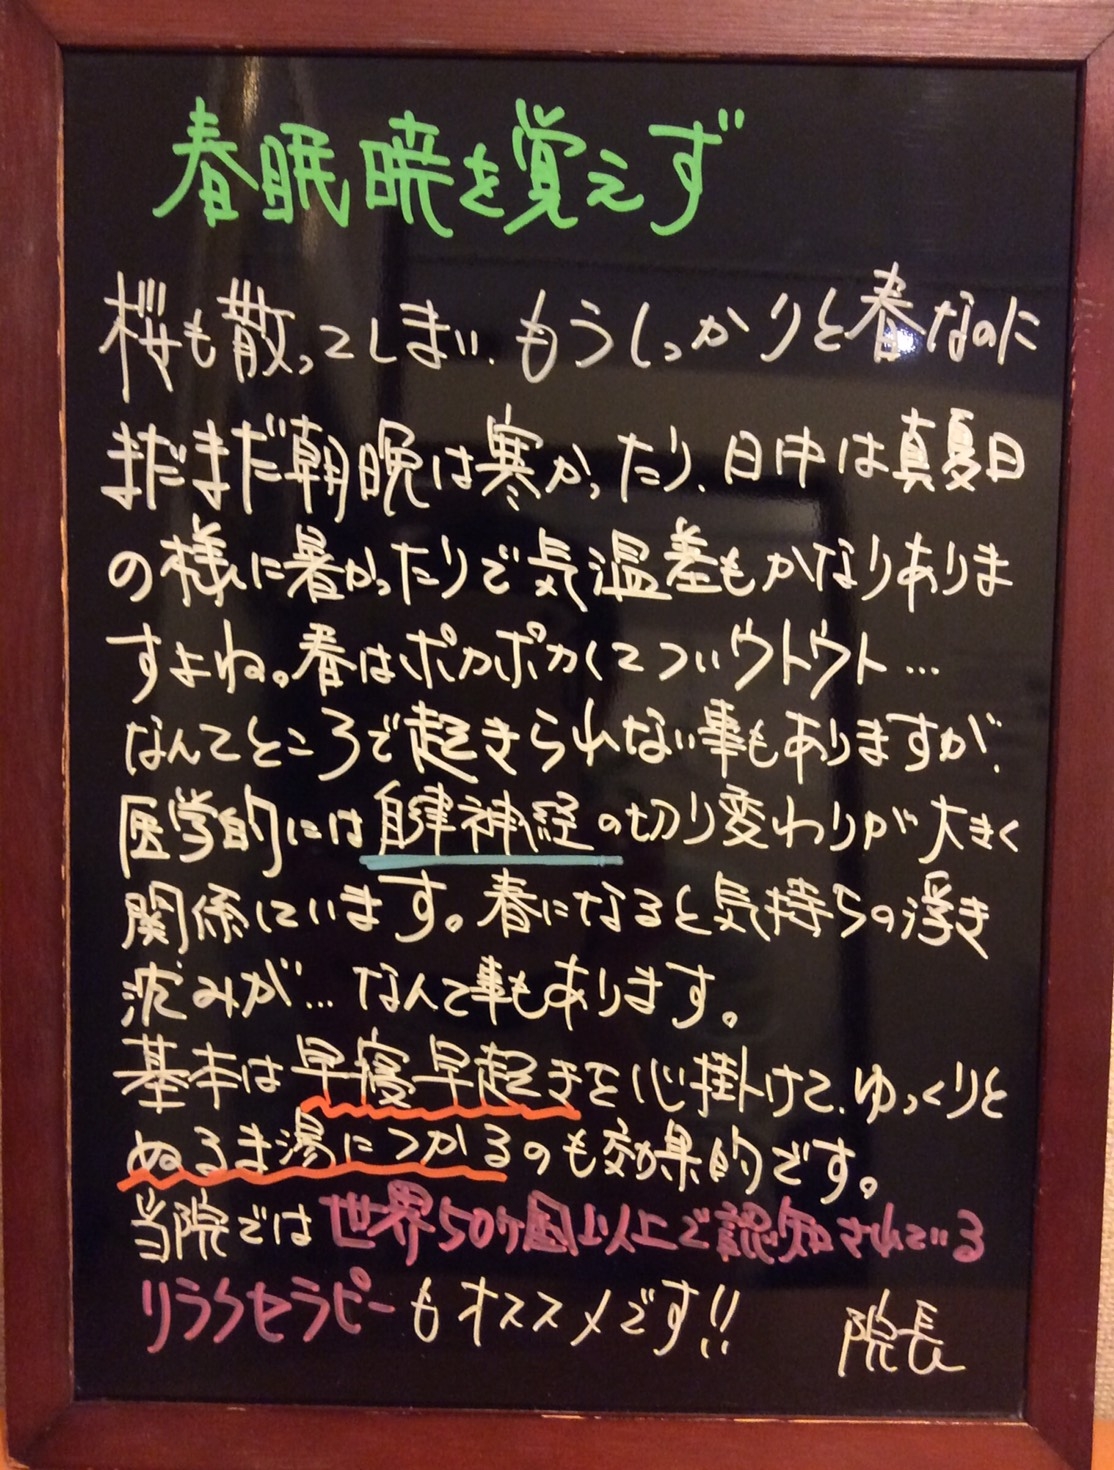 春眠暁を覚えず
桜も散ってしまい、もうしっかりと春なのに
まだまだ朝晩は寒かったり、日中は真夏日
の様に暑かったりで気温差もかなりありま
すよね。春はポカポカしてついウトウト…
なんてところで起きられない事もありますが、
医学的には自律神経の切り変わりが大きく
関係しています。春になると気持ちの浮き
沈みが…なんて事もあります。
基本は早寝早起きを心掛けて、ゆっくりと
ぬるま湯につかるのも効果的です。
当院では世界50ヶ国以上で認知されている
リラクセラピーもオススメです!!
院長